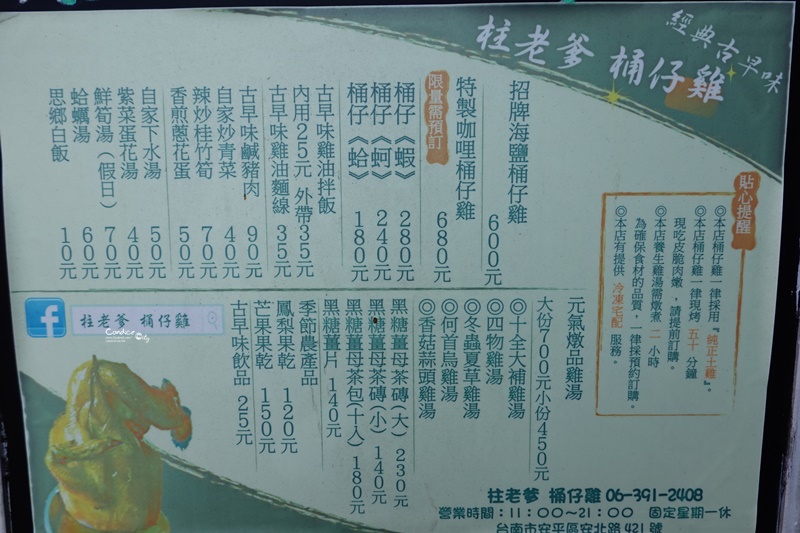 柱老爹 桶仔雞
經典古早味
招牌海鹽桶仔雞 600元
特製咖哩桶仔雞 680元
限量需預訂
桶仔《蝦》 280元
桶仔《蚵》 240元
桶仔《蛤》 180元
古早味雞油拌飯
內用25元 外帶35元
古早味雞油麵線 35元
古早味鹹豬肉 90元
自家炒青菜 40元
辣炒桂竹筍 70元
香煎蔥花蛋 50元
自家下水湯 50元
紫菜蛋花湯 40元
鮮筍湯(假日) 70元
蛤蠣湯 60元
思鄉白飯 10元
貼心提醒
◎本店桶仔雞一律採用『純正土雞』。
◎本店桶仔雞一律現烤 五十 分鐘
現吃皮脆肉嫩,請提前訂購。
◎本店養生雞湯需燉煮 二 小時
為確保食材的品質,一律採預約訂購。
◎本店有提供 冷凍宅配 服務。
元氣燉品雞湯
大份700元小份450元
◎十全大補雞湯
◎四物雞湯
◎冬蟲夏草雞湯
◎何首烏雞湯
◎香菇蒜頭雞湯
黑糖薑母茶磚(大) 230元
黑糖薑母茶磚(小) 140元
黑糖薑母茶包(十入) 180元
黑糖薑片 140元
季節農產品
鳳梨果乾 120元
芒果果乾 150元
古早味飲品 25元
f 柱老爹 桶仔雞
Candice City
柱老爹 桶仔雞 06-391-2408
營業時間:11:00~21:00 固定星期一休
台南市安平區安北路 421 號